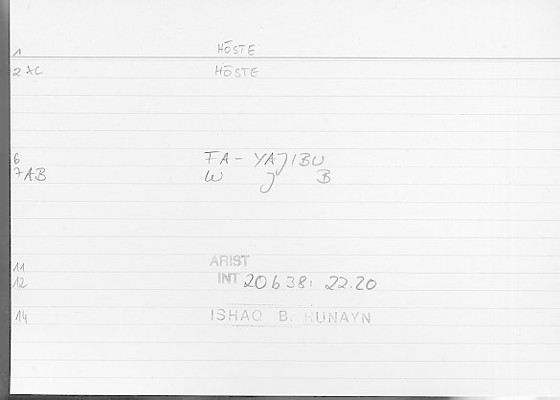 1 HŌSTE
2 *C HŌSTE
6 FA- YAJIBU
7 AB W J B
11 ARIST
12 INT 20b38: 22.20
14 ISHAQ B. HUNAYN